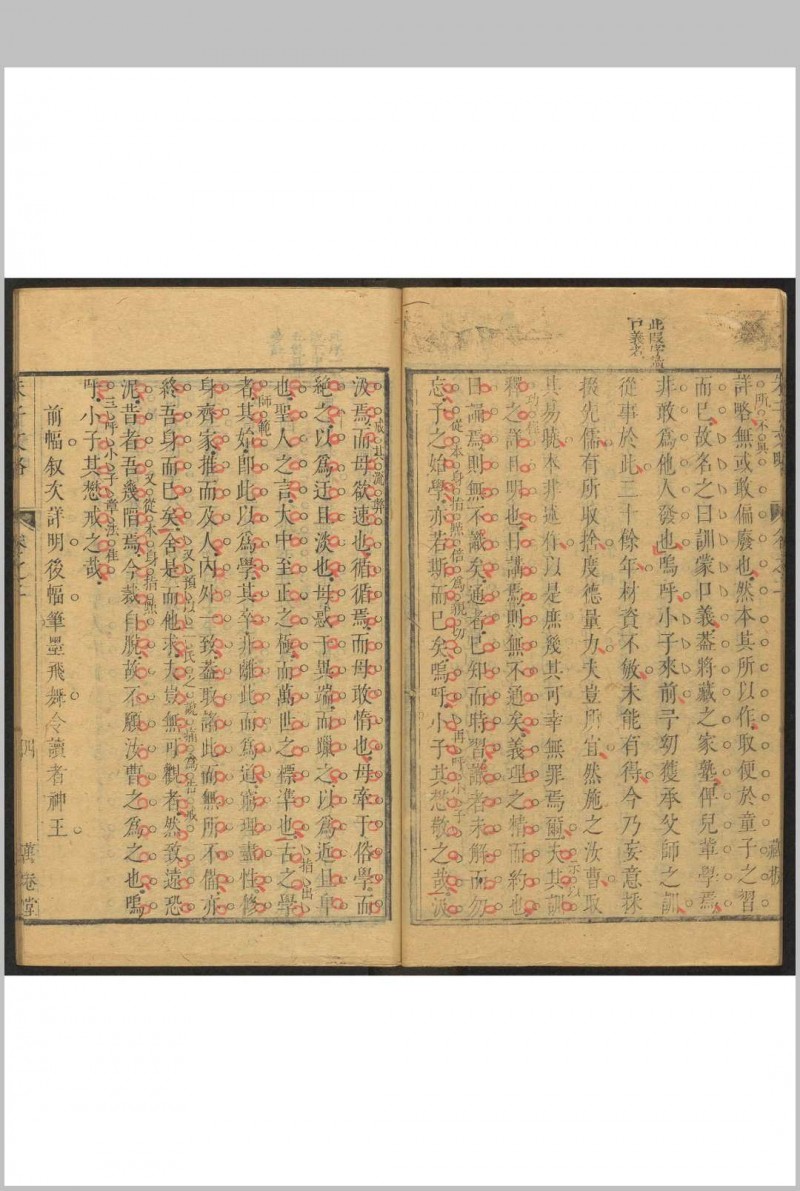 此段
口義
詳略無或敢偏廢也然本其所以作取便於童子之習
而已故名之曰訓蒙口義蓋將藏之家塾俾兒輩學焉
非敢為他人發也嗚呼小子來前予幼獲承父師之訓
從事於此三十餘年材資不敏未能有得今乃妄意採
掇先儒有所取捨度德量力夫豈所宜然施之汝曹取
其易曉本非述作以是庶幾其可幸無罪焉爾夫其訓
釋之詳且明也日講焉則無不通矣義理之精而約也
日誦焉則無不識矣通者已知而時習識者未解而勿
忘予之始學亦若斯而已矣嗚呼小子其懋敬之哉汲
所以不與
示以
功程
再呼小子
從本身指點倍為親切
汲焉而毋欲速也循循焉而毋敢惰也毋牽于俗學而
絕之以為迂且淡也毋惑于異端而躐之以為近且卑
也聖人之言大中至正之極而萬世之標準也古之學
者其始即此以為學其卒非離此而為道窮理盡性修
身齊家推而及人內外一致蓋取諸此而無所不備亦
終吾身而已矣舍是而他求夫豈無可觀者然致遠恐
泥昔者吾幾陷焉今裁自脫故不願汝曹之為之也嗚
呼小子其懋戒之哉
戒其流弊
指出
師範
又預以二氏之說痛為告戒
又從本身指點
三呼小子章法佳
前幅叙次詳明後幅筆墨飛舞令讀者神王
朱子文略
卷之二
四
萬卷堂